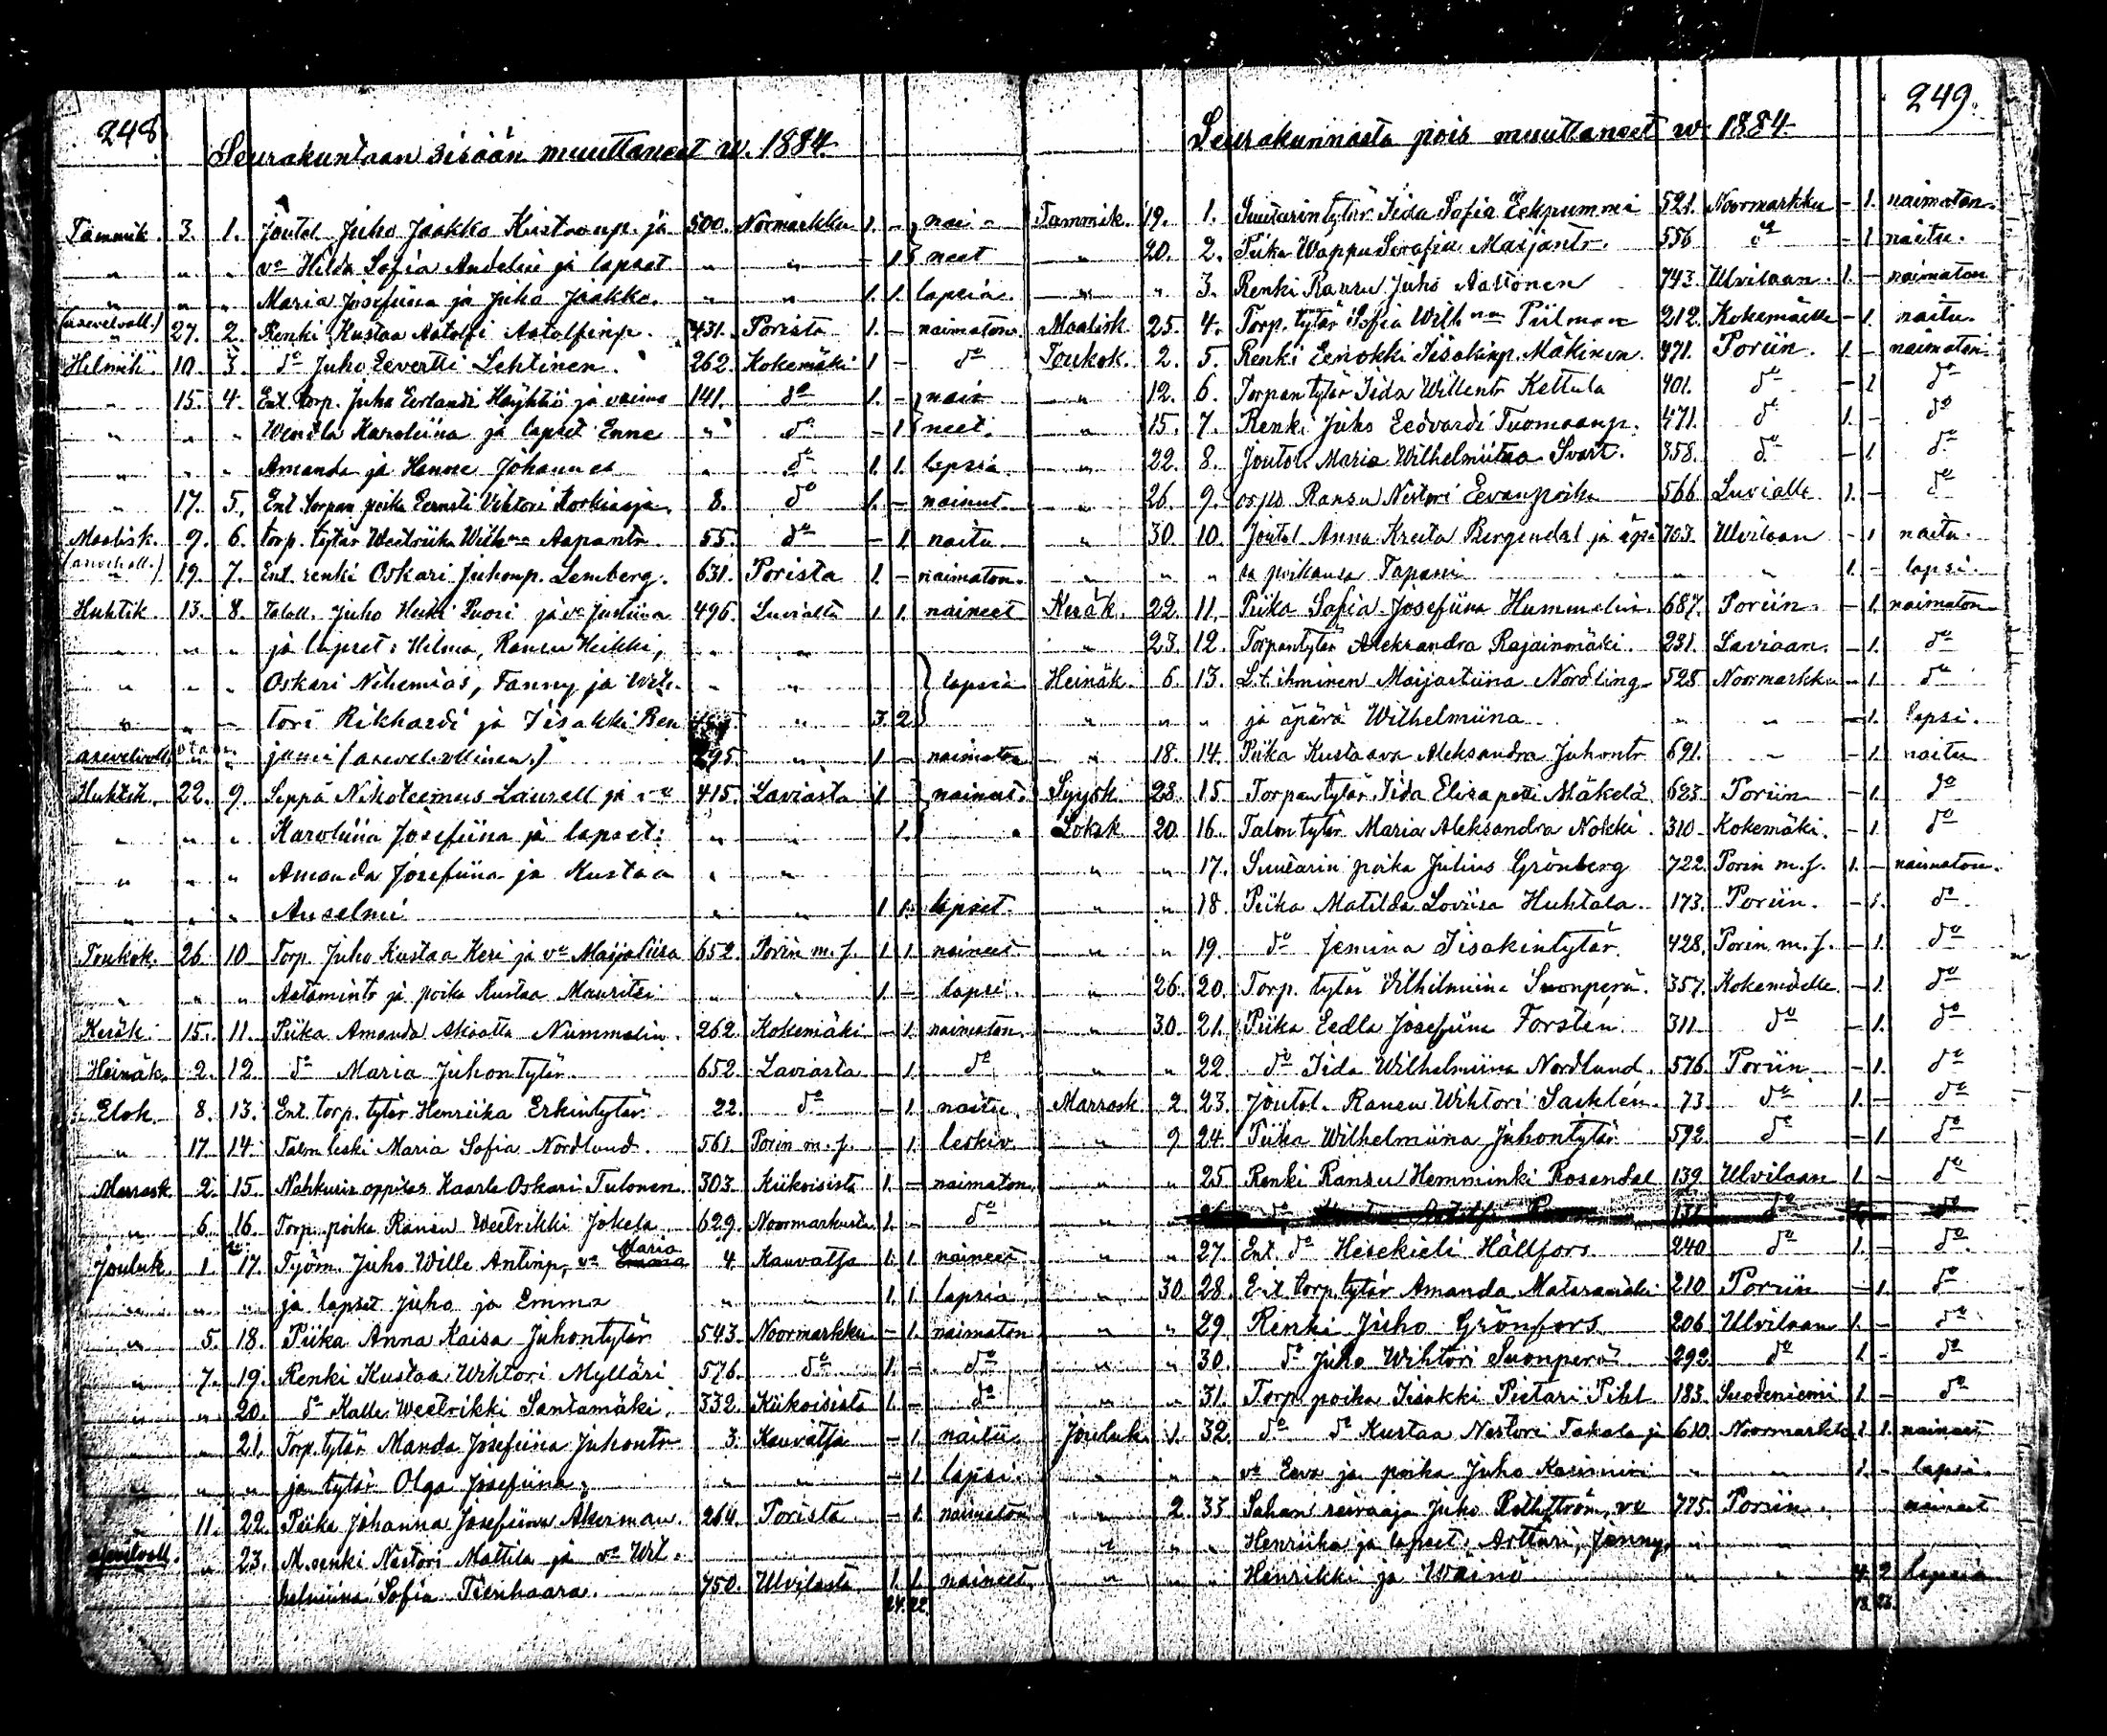 248
Seurakuntaan sisään muuttaneet w. 1884.
Tammik. 3. 1. Joutol. Juho Jaakko Kustaanp. ja 500. Normarkku 1. - nai-
" " " vo Hilda Sofia Andelin ja lapset " " - 1. neet
" " " Maria Josefiina ja Juho Jaakko. " " 1. 1. lapsia.
(asevelvoll.)
" 27. 2. Renki Kustaa Astolfi Astolfinp. 431. Porista 1. - naimaton.
Helmik. 10. 3. do Juho Eevertti Lehtinen. 262. Kokemäki 1 - do
" 15. 4. Ent. torp. Juho Eerlandi Häyhtiö ja vaimo 141. do 1. - nai-
" " " Wendla Karoliina ja lapset Enne " do - 1 neet.
" " " Amanda ja Hanne Johannes " do 1. 1. lapsia
" 17. 5. Ent. torpan poika Eernsti Vihtori Korkiaoja. 8. do 1. - nainut.
Maalisk. 9. 6. torp. tytär Weetriika Wilhna Aapontr. 55. do - 1. naitu.
(asevelvoll.)
" 19. 7. Ent. renki Oskari Juhonp. Lemberg. 631. Porista 1. - naimaton.
Huhtik. 13. 8. Taloll. Juho Heikki Puori ja vo Justiina 496. Luvialta 1. 1. naineet
" " " ja lapset: Hilma, Ransu Heikki, " "
" " " Oskari Nihemias, Fanny ja Wih- " " lapsia
" " - tori Rikhardi ja Iisakki Ben " 3. 2.
asevelvoll. " " jami (asevelvollinen.) 295. " 1 - naimaton
Huhtik. 22. 9. Seppä Nikoteemus Laurell ja vo 415. Laviasta 1. naineet.
" " " Karoliina Josefiina ja lapset: " " 1.
" " " Amanda Josefiina ja Kustaa " "
" " " Anselmi " " 1 1. lapset.
Toukok. 26. 10 Torp. Juho Kustaa Keri ja vo Maijaliisa 652. Porin m. s. 1. 1. naineet.
" " " Aatamintr ja poika Kustaa Mauritsi " " 1. - lapsi.
Kesäk. 15. 11. Piika Amanda Akaatta Nummelin. 262. Kokemäki - 1. naimaton.
Heinäk. 2. 12. do Maria Juhontytär. 652. Laviasta - 1. do
Elok. 8. 13. Ent. torp. tytär Henriika Erkintytär. 22. do - 1. naitu.
" 17 14. Talon leski Maria Sofia Nordlund. 561. Porin m. s. - 1. leskiv.
Marrask. 2. 15. Nahkurin oppilas Kaarle Oskari Tulonen. 303. Kiikoisista 1. - naimaton.
" 6. 16. Torp. poika Ransu Weetrikki Jokela. 629. Noormarkusta 1. - do
Jouluk. 1. 17. Työm. Juho Wille Antinp. vo Maria 4. Kauvatsa 1. 1. naineet
" " " ja lapset Juho ja Emma " " 1. 1. lapsia
" 5. 18. Piika Anna Kaisa Juhontytär 543. Noormarkku - 1. naimaton
" 7. 19. Renki Kustaa Wihtori Mylläri 576. do 1. - do
" " 20. do Kalle Weetrikki Santamäki. 332. Kiikoisista 1. - do
" " 21. Torp. tytär Manda Josefiina Juhontr 3. Kauvatsa - 1. naitu
" " " ja tytär Olga Josefiina. " " - 1. lapsi.
" 11. 22. Piika Johanna Josefiina Åkerman. 264. Porista - 1. naimaton
asevelvoll. " 23. M. renki Nestori Mattila ja vo Wil-
helmiina Sofia Tienhaara. 750. Ulvilasta 1. 1. naineet.
24. 22.
249.
Seurakunnasta pois muuttaneet w. 1884.
Tammik. 19. 1. Suutarin tytär Iida Sofia Eekpummi 521. Noormarkku - 1. naimaton.
" 20. 2. Piika Wappu Serafia Maijantr. 556 do - 1 naitu.
" " 3. Renki Ransu Juho Aaltonen 743. Ulvilaan. 1. - naimaton
Maalisk. 25. 4. Torp. tytär Sofia Wilhna Piilman 212. Kokemäelle - 1. naitu.
Toukok. 2. 5. Renki Eenokki Iisakinp. Mäkinen. 471. Poriin. 1. - naimaton.
" 12. 6. Torpan tytär Iida Willentr Kettula 401. do - 1 do
" 15. 7. Renki Juho Eedvardi Tuomaanp. 471. do 1. - do
" 22. 8. Joutol. Maria Wilhelmiina Svart. 358. do - 1 do
" 26. 9. Ransu Nestori Eevanpoika 566 Luvialle 1. - do
" 30. 10. Joutol. Anna Kreeta Bergendal ja äpä- 703. Ulvilaan - 1 naitu.
" " " rä poikansa Tapani " " 1. - lapsi.
Kesäk. 22. 11. Piika Sofia Josefiina Hummelin. 687. Poriin. - 1. naimaton
" 23. 12. Torpantytär Aleksandra Rajainmäki. 231. Laviaan. - 1. do
Heinäk. 6. 13. L. t. ihminen Maijastiina Nordling 528 Noormarkku - 1. do
" " " ja äpärä Wilhelmiina " " - 1. lapsi.
" 18. 14. Piika Kustaava Aleksandra Juhontr 691. - - 1. naitu
Syysk. 28. 15. Torpantytär Iida Elisapetti Mäkelä 623. Poriin - 1. do
Lokak. 20. 16. Talon tytär Maria Aleksandra Nokki. 310. Kokemäki. - 1. do
" " 17. Suutarin poika Julius Grönberg 722. Porin m. s. 1. - naimaton.
" " 18. Piika Matilda Loviisa Huhtala. 173. Poriin. - 1. do
" " 19. do Jemina Iisakintytär. 428. Porin m. s. - 1. do
" 26. 20. Torp. tytär Vilhelmiina Suonperä. 357. Kokemäelle. - 1. do
" 30. 21. Piika Eedla Josefiina Forstén. 311. do - 1. do
" " 22. do Iida Wilhelmiina Nordlund. 576. Poriin. - 1. do
Marrask. 2. 23. Joutol. Ransu Wihtori Sarklén. 73. do 1. - do
" 9 24. Piika Wilhelmiina Juhontytär 592. do - 1 do
" " 25 Renki Ransu Hemminki Rosendal 139. Ulvilaan 1 - do
" " 27. Ent. do Hesekieli Hällfors 240 do 1. - do
" 30 28. Ent. torp. tytär Amanda Matasamäki 210 Poriin - 1. do
" " 29 Renki Juho Grönfors 206 Ulvilaan 1. - do
" " 30. do Juho Wihtori Suonperä. 292. do 1. - do
" " 31. Torp. poika Iisakki Pietari Pihl 183. Suodeniemi 1 - do
Jouluk. 1. 32. do do Kustaa Nestori Takala ja 610. Noormarkku 1. 1. naineet
" " " vo Eeva ja poika Juho Kasimiri " " 1. - lapsi.
" 2. 33 Sahan Juho vo 775. Poriin. naineet
" " " Henriika ja lapset: Artturi, Jenny, " "
" " " Henrikki ja Wäinö " " 4. 2 lapsia
18. 23.